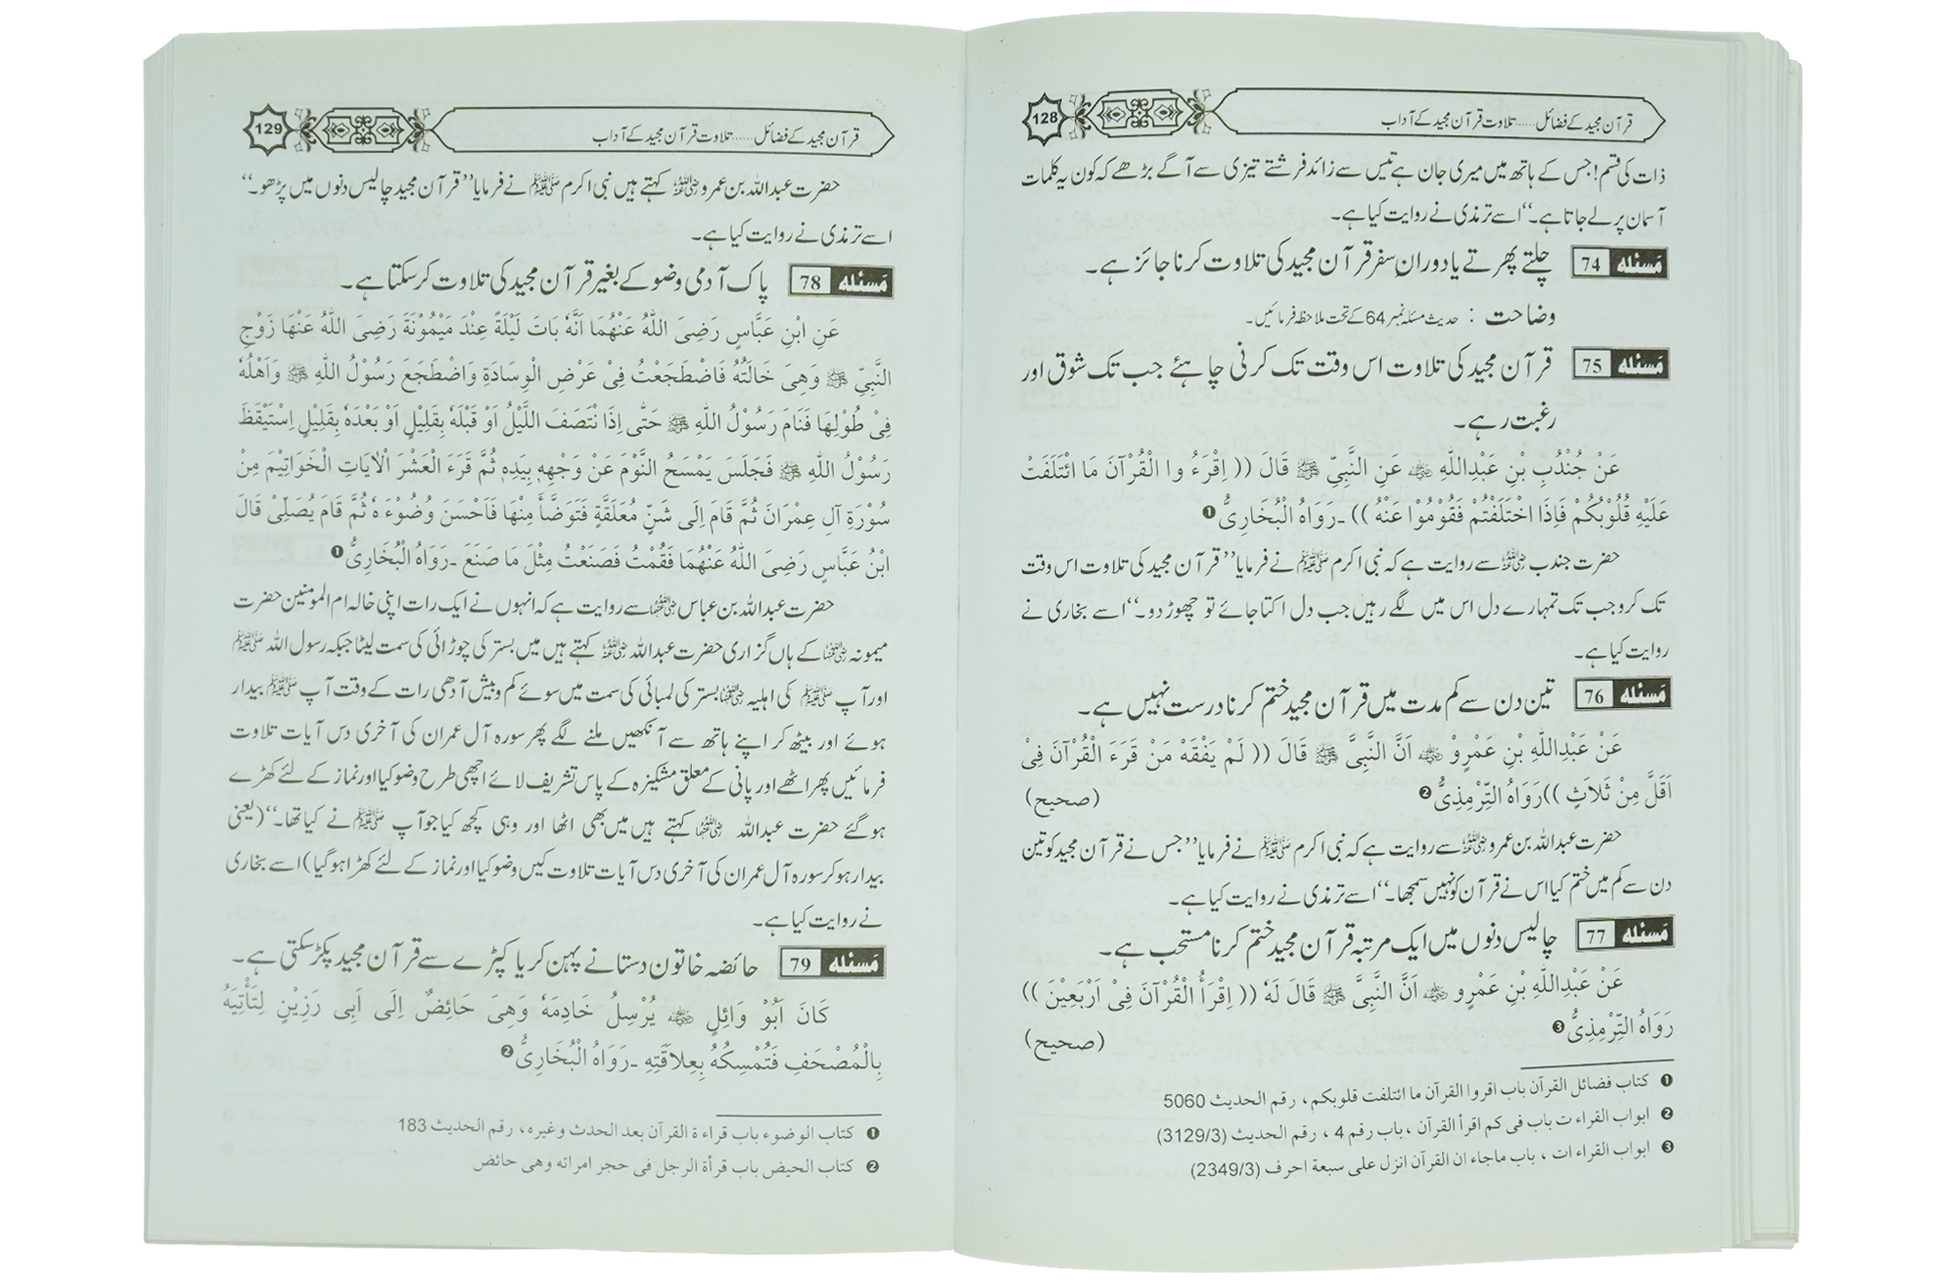 قرآن مجید کے فضائل ...... تلاوت قرآن مجید کے آداب
128
ذات کی قسم! جس کے ہاتھ میں میری جان ہے تیس سے زائد فرشتے تیزی سے آگے بڑھے کہ کون یہ کلمات
آسمان پر لے جاتا ہے۔‘‘ اسے ترمذی نے روایت کیا ہے۔
مَسئلہ 74 چلتے پھرتے یا دورانِ سفر قرآن مجید کی تلاوت کرنا جائز ہے۔
وضاحت : حدیث مسئلہ نمبر 64 کے تحت ملاحظہ فرمائیں۔
مَسئلہ 75 قرآن مجید کی تلاوت اس وقت تک کرنی چاہئے جب تک شوق اور
رغبت رہے۔
عَنْ جُنْدُبِ بْنِ عَبْدِاللّٰهِ ؓ عَنِ النَّبِیِّ ﷺ قَالَ (( اِقْرَءُ وا الْقُرْآنَ مَا ائْتَلَفَتْ
عَلَیْهِ قُلُوْبُکُمْ فَاِذَا اخْتَلَفْتُمْ فَقُوْمُوْا عَنْهُ )) ۔رَوَاهُ الْبُخَارِیُّ ❶
حضرت جندب ؓ سے روایت ہے کہ نبی اکرم ﷺ نے فرمایا ’’قرآن مجید کی تلاوت اس وقت
تک کرو جب تک تمہارے دل اس میں لگے رہیں جب دل اکتا جائے تو چھوڑ دو۔‘‘ اسے بخاری نے
روایت کیا ہے۔
مَسئلہ 76 تین دن سے کم مدت میں قرآن مجید ختم کرنا درست نہیں ہے۔
عَنْ عَبْدِاللّٰهِ بْنِ عَمْرٍوْ ؓ اَنَّ النَّبِیَّ ﷺ قَالَ (( لَمْ یَفْقَهْ مَنْ قَرَءَ الْقُرْآنَ فِیْ
اَقَلَّ مِنْ ثَلاَثٍ ))رَوَاهُ التِّرْمِذِیُّ ❷ (صحیح)
حضرت عبداللہ بن عمرو ؓ سے روایت ہے کہ نبی اکرم ﷺ نے فرمایا ’’جس نے قرآن مجید کو تین
دن سے کم میں ختم کیا اس نے قرآن کو نہیں سمجھا۔‘‘ اسے ترمذی نے روایت کیا ہے۔
مَسئلہ 77 چالیس دنوں میں ایک مرتبہ قرآن مجید ختم کرنا مستحب ہے۔
عَنْ عَبْدِاللّٰهِ بْنِ عَمْرٍو ؓ اَنَّ النَّبِیَّ ﷺ قَالَ لَهٗ (( اِقْرَأُ الْقُرْآنَ فِیْ اَرْبَعِیْنَ ))
رَوَاهُ التِّرْمِذِیُّ ❸ (صحیح)
❶ کتاب فضائل القرآن باب اقروا القرآن ما ائتلفت قلوبکم ، رقم الحدیث 5060
❷ ابواب القراء ت باب فی کم اقرأ القرآن ، باب رقم 4 ، رقم الحدیث (3129/3)
❸ ابواب القراء ات ، باب ماجاء ان القرآن انزل علی سبعة احرف (2349/3)
قرآن مجید کے فضائل ...... تلاوت قرآن مجید کے آداب
129
حضرت عبداللہ بن عمرو ؓ کہتے ہیں نبی اکرم ﷺ نے فرمایا ’’قرآن مجید چالیس دنوں میں پڑھو۔‘‘
اسے ترمذی نے روایت کیا ہے۔
مَسئلہ 78 پاک آدمی وضو کے بغیر قرآن مجید کی تلاوت کر سکتا ہے۔
عَنِ ابْنِ عَبَّاسٍ رَضِیَ اللّٰهُ عَنْهُمَا اَنَّهٗ بَاتَ لَیْلَةً عِنْدَ مَیْمُوْنَةَ رَضِیَ اللّٰهُ عَنْهَا زَوْجِ
النَّبِیِّ ﷺ وَهِیَ خَالَتُهُ فَاضْطَجَعْتُ فِیْ عَرْضِ الْوِسَادَةِ وَاضْطَجَعَ رَسُوْلُ اللّٰهِ ﷺ وَاَهْلُهٗ
فِیْ طُوْلِهَا فَنَامَ رَسُوْلُ اللّٰهِ ﷺ حَتّٰی اِذَا نْتَصَفَ اللَّیْلُ اَوْ قَبْلَهٗ بِقَلِیْلٍ اَوْ بَعْدَهٗ بِقَلِیْلٍ اِسْتَیْقَظَ
رَسُوْلُ اللّٰهِ ﷺ فَجَلَسَ یَمْسَحُ النَّوْمَ عَنْ وَجْهِهٖ بِیَدِهٖ ثُمَّ قَرَءَ الْعَشْرَ الْاٰیَاتِ الْخَوَاتِیْمَ مِنْ
سُوْرَةِ آلِ عِمْرَانَ ثُمَّ قَامَ اِلَی شَنٍّ مُعَلَّقَةٍ فَتَوَضَّأَ مِنْهَا فَاَحْسَنَ وُضُوْءَ هٗ ثُمَّ قَامَ یُصَلِّیْ قَالَ
ابْنُ عَبَّاسٍ رَضِیَ اللّٰهُ عَنْهُمَا فَقُمْتُ فَصَنَعْتُ مِثْلَ مَا صَنَعَ ۔رَوَاهُ الْبُخَارِیُّ ❶
حضرت عبداللہ بن عباس ؓ سے روایت ہے کہ انہوں نے ایک رات اپنی خالہ ام المومنین حضرت
میمونہ ؓ کے ہاں گزاری حضرت عبداللہ ؓ کہتے ہیں میں بستر کی چوڑائی کی سمت لیٹا جبکہ رسول اللہ ﷺ
اور آپ ﷺ کی اہلیہ ؓ بستر کی لمبائی کی سمت میں سوئے کم و بیش آدھی رات کے وقت آپ ﷺ بیدار
ہوئے اور بیٹھ کر اپنے ہاتھ سے آنکھیں ملنے لگے پھر سورہ آل عمران کی آخری دس آیات تلاوت
فرمائیں پھر اٹھے اور پانی کے معلق مشکیزہ کے پاس تشریف لائے اچھی طرح وضو کیا اور نماز کے لئے کھڑے
ہو گئے حضرت عبداللہ ؓ کہتے ہیں میں بھی اٹھا اور وہی کچھ کیا جو آپ ﷺ نے کیا تھا۔‘‘ (یعنی
بیدار ہو کر سورہ آل عمران کی آخری دس آیات تلاوت کیں وضو کیا اور نماز کے لئے کھڑا ہو گیا) اسے بخاری
نے روایت کیا ہے۔
مَسئلہ 79 حائضہ خاتون دستانے پہن کر یا کپڑے سے قرآن مجید پکڑ سکتی ہے۔
کَانَ اَبُوْ وَائِلٍ ؓ یُرْسِلُ خَادِمَهٗ وَهِیَ حَائِضٌ اِلَی اَبِی رَزِیْنٍ لِتَأْتِیَهُ
بِالْمُصْحَفِ فَتُمْسِکُهُ بِعِلاَقَتِهِ ۔رَوَاهُ الْبُخَارِیُّ ❷
❶ کتاب الوضوء باب قراء ة القرآن بعد الحدث وغیره، رقم الحدیث 183
❷ کتاب الحیض باب قرأة الرجل فی حجر امراته وهی حائض